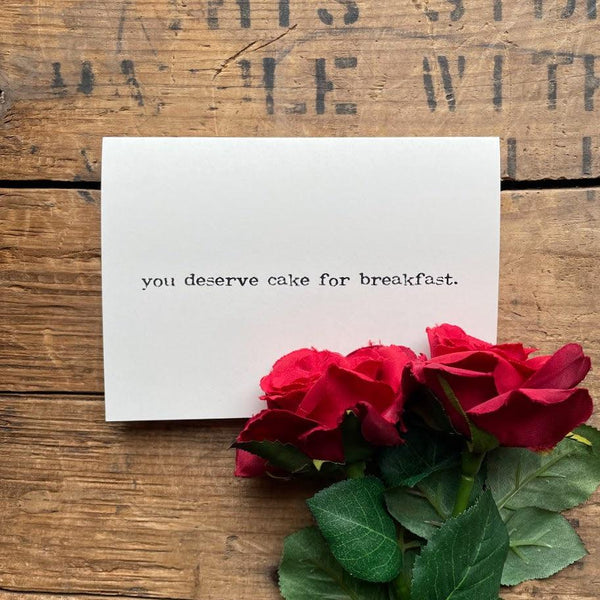 WITH
you deserve cake for breakfast.